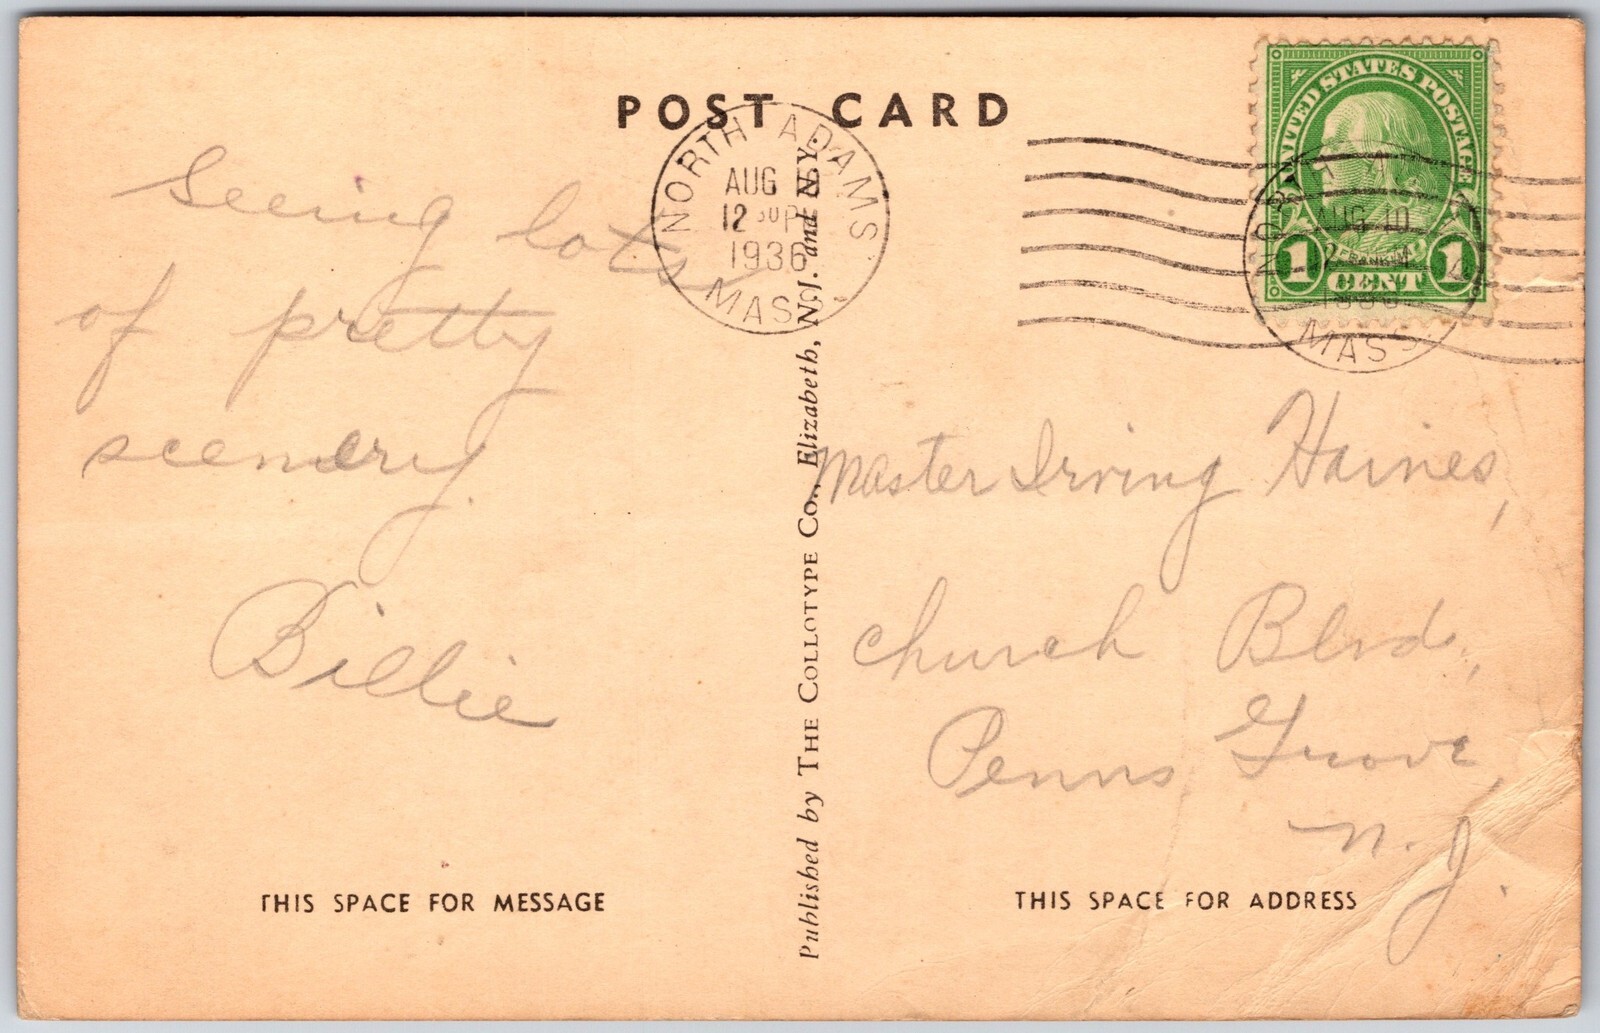 POST CARD
NORTH ADAMS
AUG
12 30 P
1936
MASS.
UNITED STATES POSTAGE
AUG 10
FRANKLIN
1 CENT 1
MASS.
Seeing lots
of pretty
scenery.
Billie
Published by THE COLLOTYPE CO., Elizabeth, N.J. and N.Y.
Master Irving Haines,
Church Blvd.,
Penns Grove,
N. J.
THIS SPACE FOR MESSAGE
THIS SPACE FOR ADDRESS